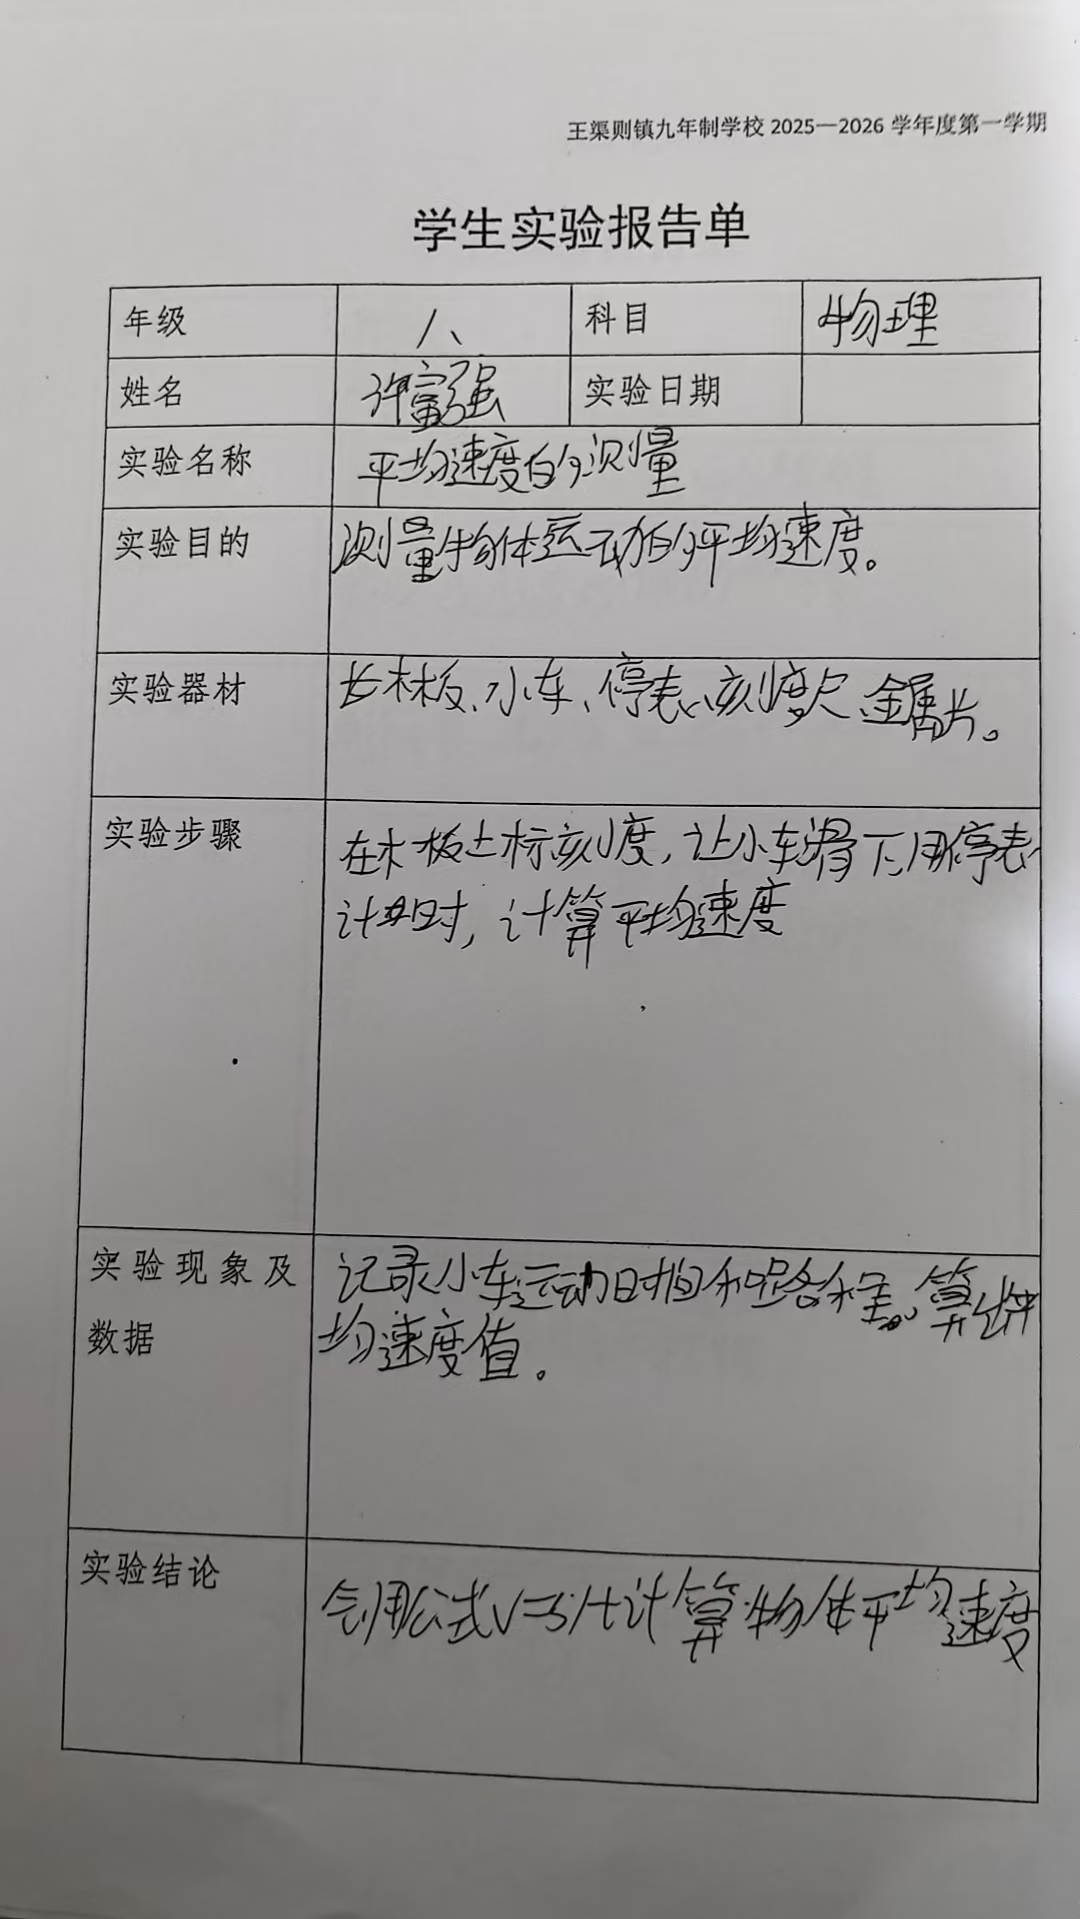 王渠则镇九年制学校 2025—2026 学年度第一学期
学生实验报告单
年级 八 科目 物理
姓名 许富强 实验日期
实验名称 平均速度的测量
实验目的 测量物体运动的平均速度。
实验器材 长木板、小车、停表、刻度尺、金属片。
实验步骤 在木板上标刻度，让小车滑下，用停表
计时，计算平均速度
实验现象及 记录小车运动时间和路程。算出平
数据 均速度值。
实验结论 会用公式v=s/t计算物体平均速度